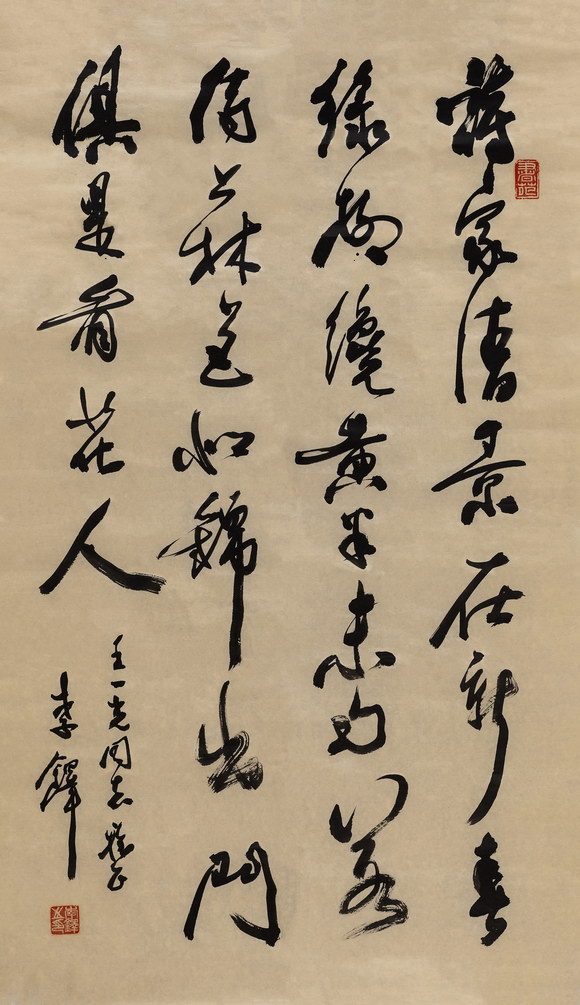 詩家清景在新春
綠柳纔黄半未匀若
待上林花似錦出門
俱是看花人
王一光同志雅正
李鐸